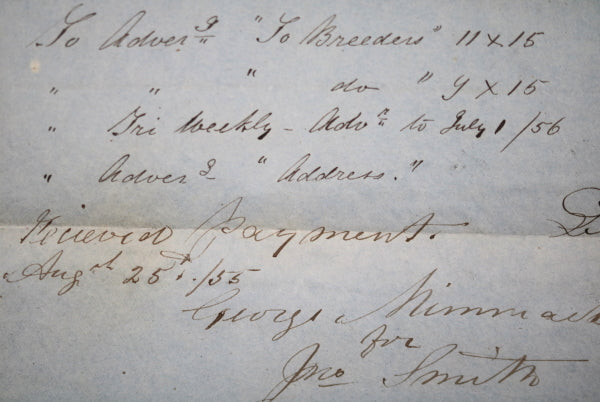 To Adverg "To Breeders" 11 x 15
" " " do " 9 x 15
" Tri Weekly - Advn to July 1/56
" Adverg "Address."
Recieved Payment.
Augst 25th./55
George
for
Jno Smith